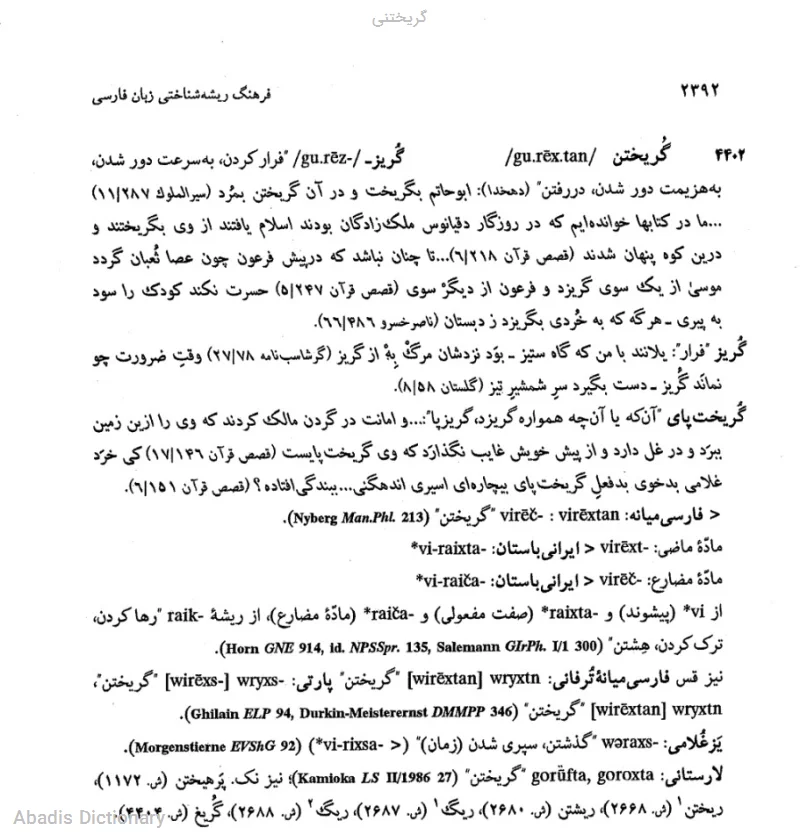 گریختنی
۲۳۹۲ فرهنگ ریشه‌شناختی زبان فارسی
۴۴۰۲ گُریختن /gu.rēx.tan/ گُریز- /gu.rēz-/ "فرار کردن، به‌سرعت دور شدن،
به‌هزیمت دور شدن، دررفتن" (دهخدا): ابوحاتم بگریخت و در آن گریختن بمُرد (سیرالملوک ۱۱/۲۸۷)
...ما در کتابها خوانده‌ایم که در روزگار دقیانوس ملک‌زادگان بودند اسلام یافتند از وی بگریختند و
درین کوه پنهان شدند (قصص قرآن ۶/۲۱۸)...تا چنان نباشد که درپیش فرعون چون عصا ثُعبان گردد
موسیٰ از یک سوی گریزد و فرعون از دیگر سوی (قصص قرآن ۵/۲۴۷) حسرت نکند کودک را سود
به پیری ـ هرگه که به خُردی بگریزد ز دبستان (ناصرخسرو ۶۶/۴۸۶).
گُریز "فرار": یلانند با من که گاه ستیز ـ بوَد نزدشان مرگ بِهْ از گریز (گرشاسب‌نامه ۲۷/۷۸) وقتِ ضرورت چو
نمانَد گُریز ـ دست بگیرد سرِ شمشیرِ تیز (گلستان ۸/۵۸).
گُریخت‌پای "آن‌که یا آن‌چه همواره گریزد، گریزپا":...و امانت در گردن مالک کردند که وی را ازین زمین
ببرَد و در غل دارد و از پیش خویش غایب نگذارَد که وی گریخت‌پایست (قصص قرآن ۱۷/۱۴۶) کی خرَد
غلامی بدخوی بدفعلِ گریخت‌پای بیچاره‌ای اسیری اندهگنی...ببندگی افتاده؟ (قصص قرآن ۶/۱۵۱).
< فارسی‌میانه: virēxtan : virēč- "گریختن" (Nyberg Man.Phl. 213).
مادّهٔ ماضی: virēxt- < ایرانی‌باستان: *vi-raixta-
مادّهٔ مضارع: virēč- < ایرانی‌باستان: *vi-raiča-
از *vi (پیشوند) و *raixta- (صفت مفعولی) و *raiča- (مادّهٔ مضارع)، از ریشهٔ raik- "رها کردن،
ترک کردن، هِشتن" (Horn GNE 914, id. NPSSpr. 135, Salemann GIrPh. I/1 300).
نیز قس فارسی‌میانهٔ تُرفانی: wryxtn [wirēxtan] "گریختن" پارتی: wryxs- [wirēxs-] "گریختن"،
wryxtn [wirēxtan] "گریختن" (Ghilain ELP 94, Durkin-Meisterernst DMMPP 346).
یَزغُلامی: wəraxs- "گذشتن، سپری شدن (زمان)" (< *vi-rixsa-) (Morgenstierne EVShG 92).
لارستانی: gorūfta, goroxta "گریختن" (Kamioka LS II/1986 27)؛ نیز نک. پَرهیختن (ش. ۱۱۷۲)،
ریختن¹ (ش. ۲۶۶۸)، ریشتن (ش. ۲۶۸۰)، ریگ¹ (ش. ۲۶۸۷)، ریگ² (ش. ۲۶۸۸)، گُریغ (ش. ۴۴۰۴).
Abadis Dictionary